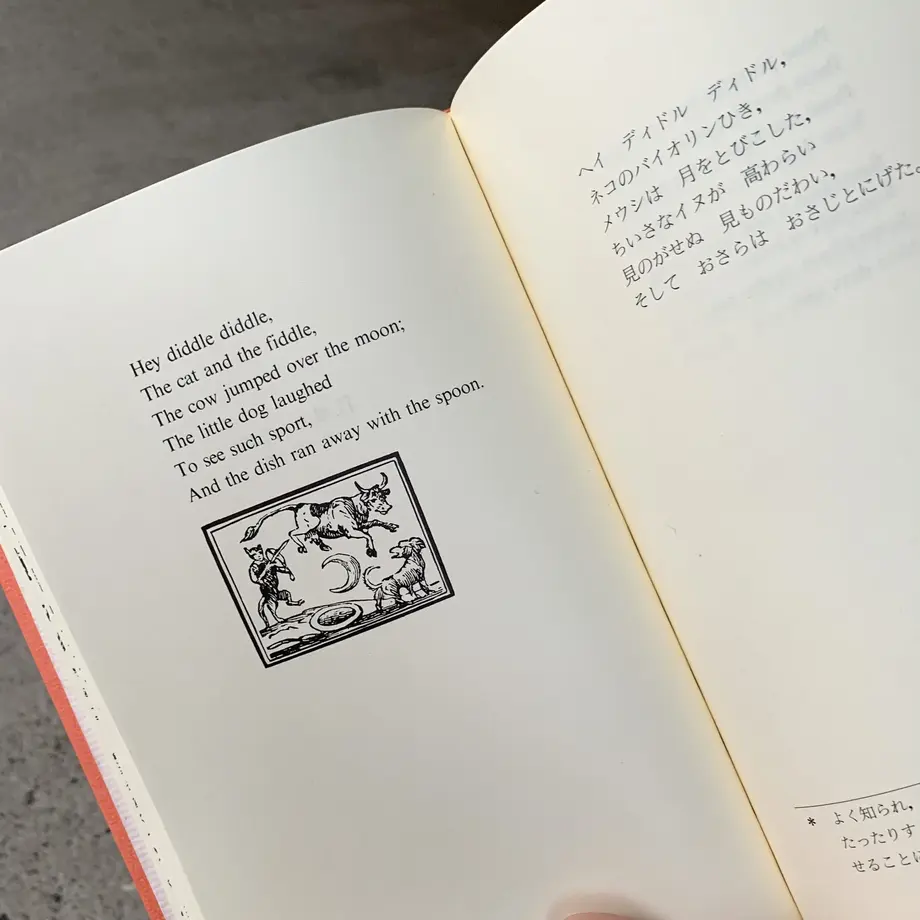 Hey diddle diddle,
The cat and the fiddle,
The cow jumped over the moon;
The little dog laughed
To see such sport,
And the dish ran away with the spoon.
ヘイ　ディドル　ディドル,
ネコのバイオリンひき,
メウシは　月をとびこした,
ちいさなイヌが　高わらい
見のがせぬ　見ものだわい,
そして　おさらは　おさじとにげた。
*　よく知られ,
たったりす
せることに